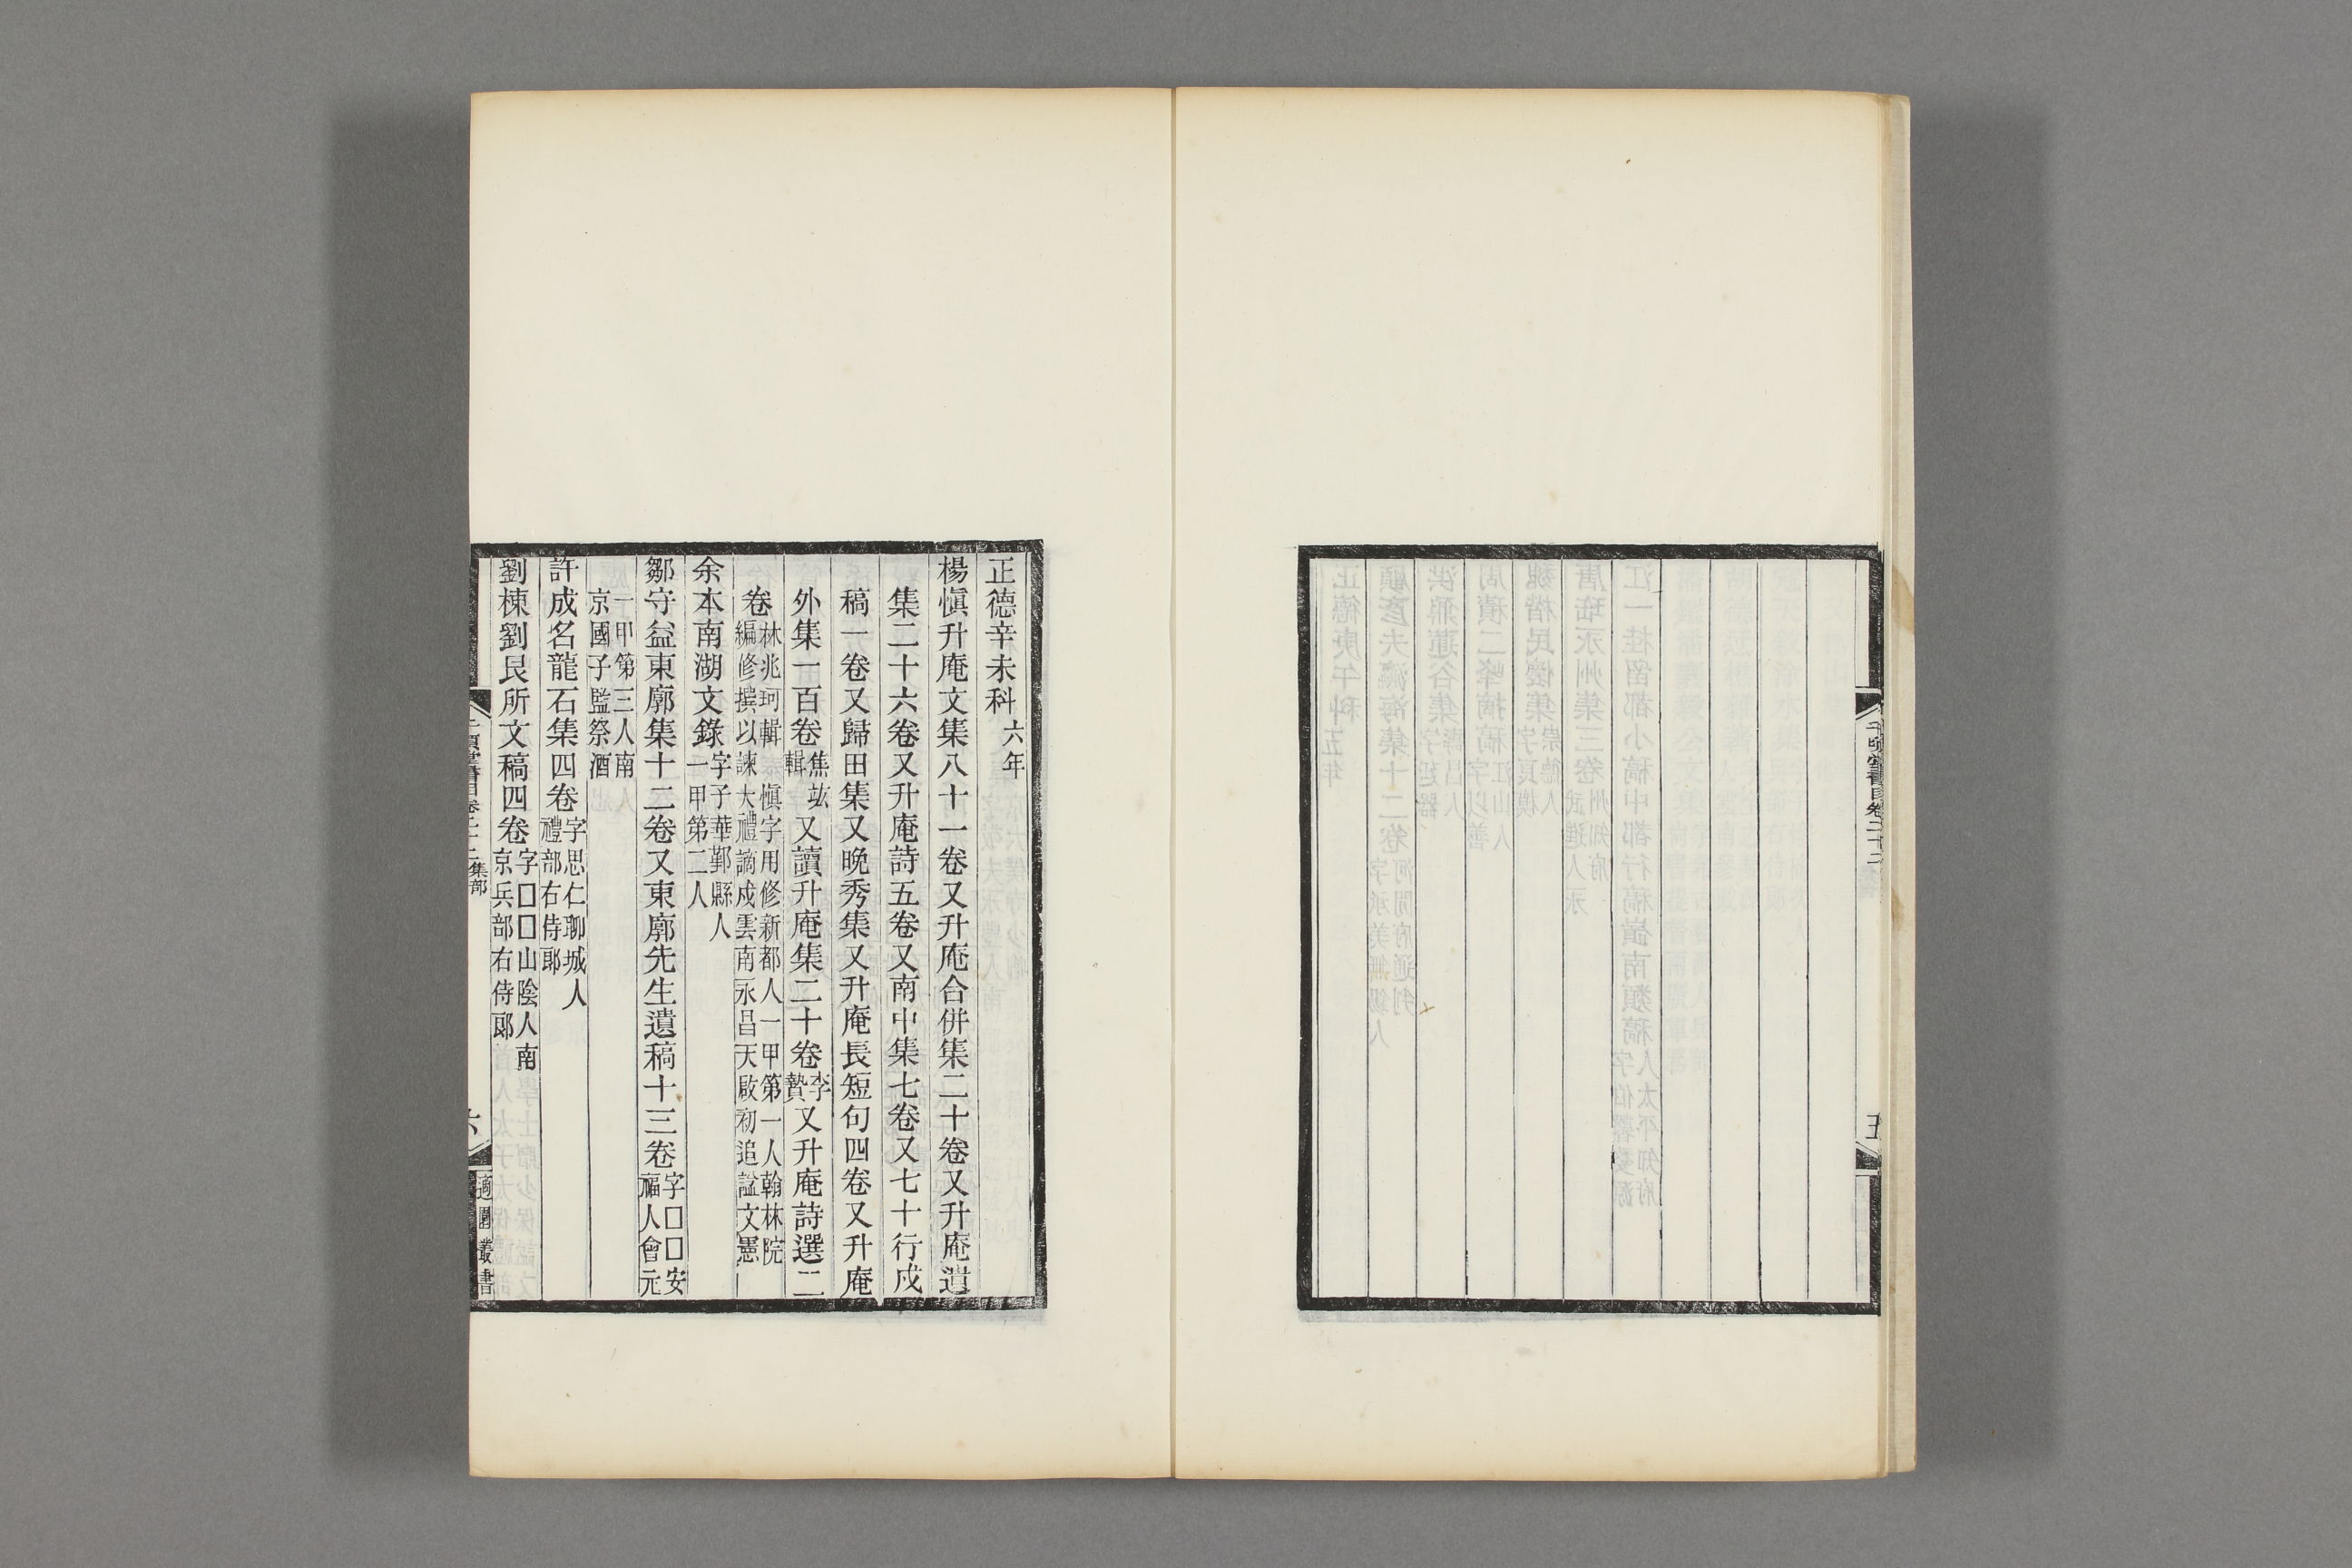 正德辛未科六年
楊愼升庵文集八十一卷又升庵合併集二十卷又升庵遺
集二十六卷又升庵詩五卷又南中集七卷又七十行戍
稿一卷又歸田集又晩秀集又升庵長短句四卷又升庵
外集一百卷焦竑輯又讀升庵集二十卷李贄又升庵詩選二
卷林兆珂輯愼字用修新都人一甲第一人翰林院編修撰以諫大禮謫戍雲南永昌天啟初追諡文憲
余本南湖文錄字子華鄞縣人一甲第二人
鄒守益東廓集十二卷又東廓先生遺稿十三卷字囗囗安福人會元
一甲第三人南京國子監祭酒
許成名龍石集四卷字思仁聊城人禮部右侍郞
劉棟劉艮所文稿四卷字囗囗山陰人南京兵部右侍郞
千頃堂書目卷二十二集部
六
適園叢書
千頃堂書目卷二十二
五